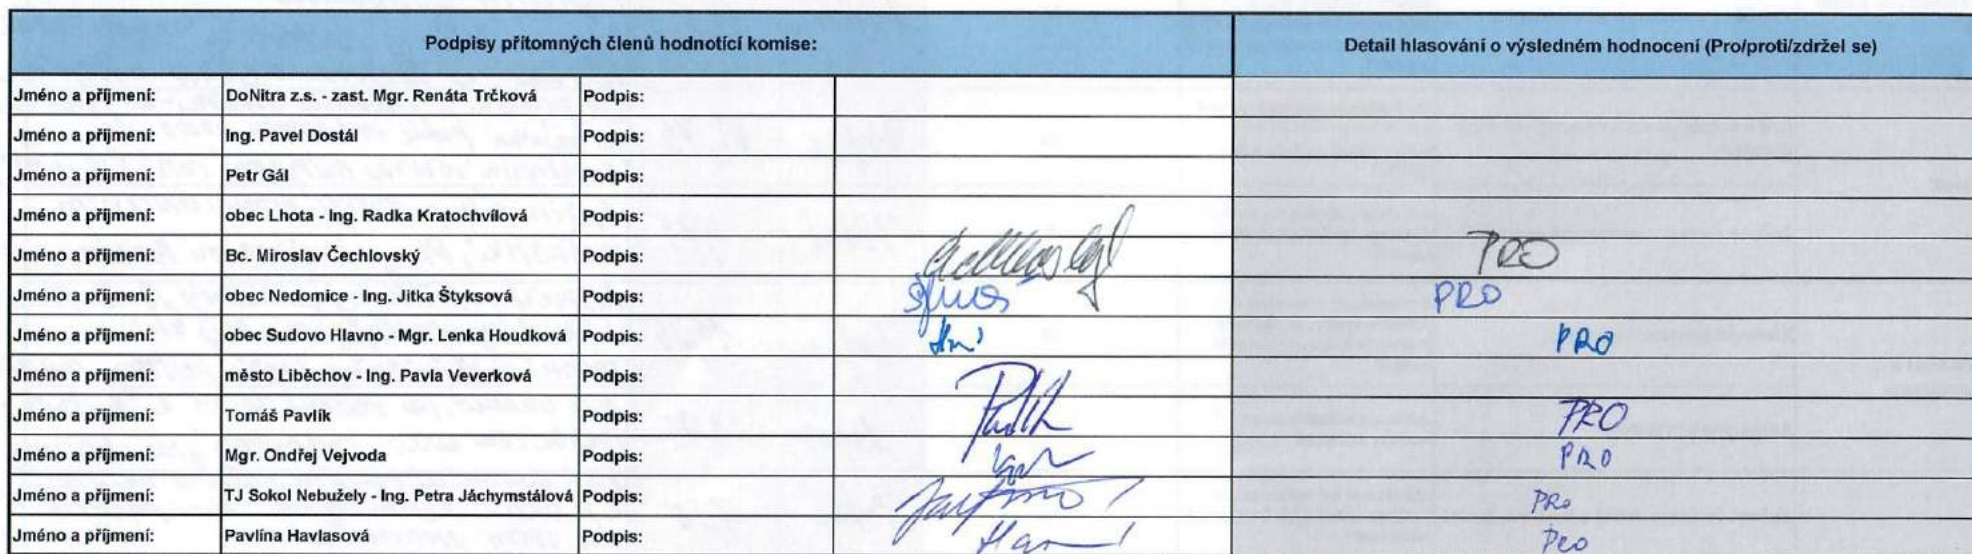 Podpisy přítomných členů hodnotící komise: Detail hlasování o výsledném hodnocení (Pro/proti/zdržel se)
Jméno a příjmení: DoNitra z.s. - zast. Mgr. Renáta Trčková Podpis:
Jméno a příjmení: Ing. Pavel Dostál Podpis:
Jméno a příjmení: Petr Gál Podpis:
Jméno a příjmení: obec Lhota - Ing. Radka Kratochvílová Podpis:
Jméno a příjmení: Bc. Miroslav Čechlovský Podpis: PRO
Jméno a příjmení: obec Nedomice - Ing. Jitka Štyksová Podpis: PRO
Jméno a příjmení: obec Sudovo Hlavno - Mgr. Lenka Houdková Podpis: PRO
Jméno a příjmení: město Liběchov - Ing. Pavla Veverková Podpis:
Jméno a příjmení: Tomáš Pavlík Podpis: PRO
Jméno a příjmení: Mgr. Ondřej Vejvoda Podpis: PRO
Jméno a příjmení: TJ Sokol Nebužely - Ing. Petra Jáchymstálová Podpis: PRo
Jméno a příjmení: Pavlína Havlasová Podpis: Pro